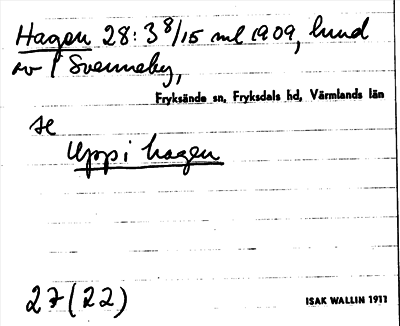 Hagen 28:3 8/15 ml 1909, hmd
av 1 Svenneby,
Fryksände sn, Fryksdals hd, Värmlands län
se
Uppi hagen
27 (22)
ISAK WALLIN 1911